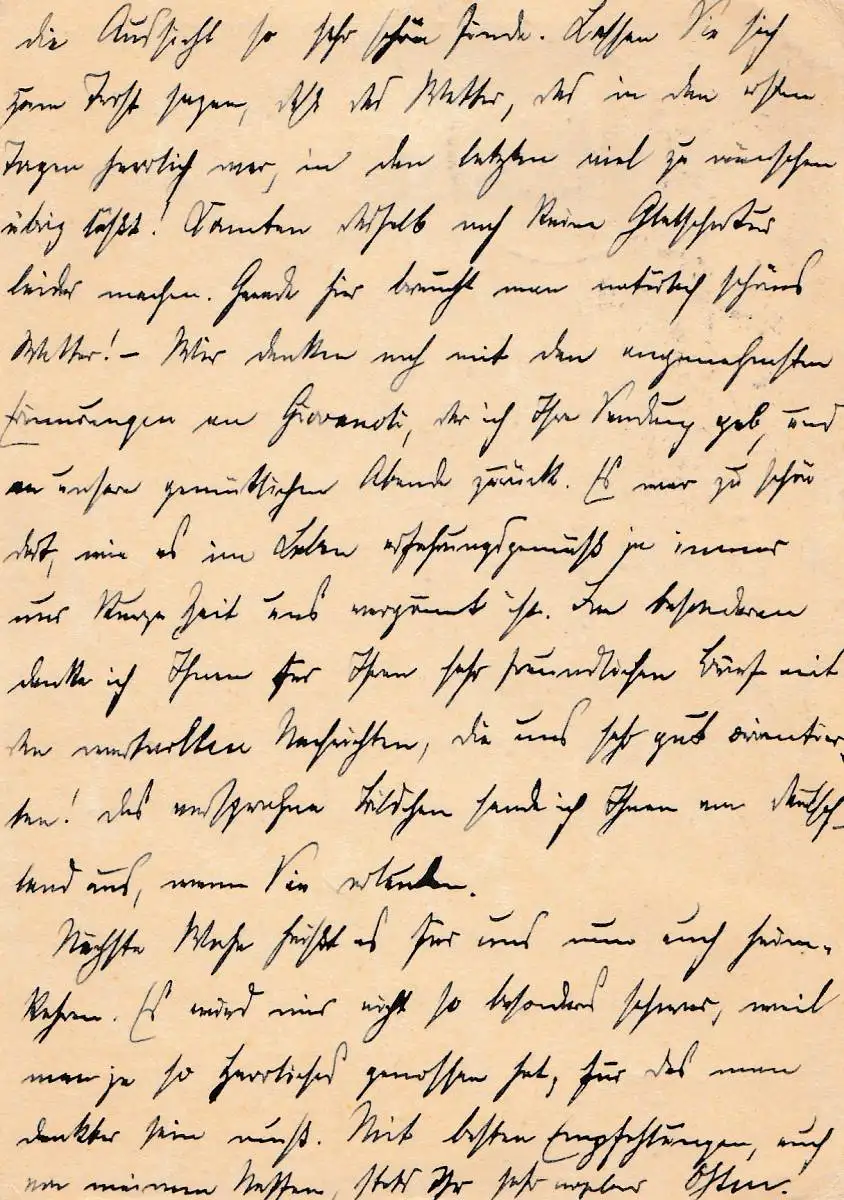 die Aussicht so sehr schön finde. Lassen Sie sich
zum Trost sagen, daß das Wetter, das in den ersten
Tagen herrlich war, in den letzten viel zu wünschen
übrig läßt! Konnten deshalb noch keine Gletschertour
leider machen. Gerade hier braucht man natürlich schönes
Wetter! – Wir denken noch mit den angenehmsten
Erinnerungen an Giovanoli, der ich Ihre Sendung gab, und
an unsere gemütlichen Abende zurück. Es war zu schön
dort, wie es im Leben erfahrungsgemäß ja immer
nur kurze Zeit uns vergönnt ist. Im besonderen
danke ich Ihnen für Ihren sehr freundlichen Brief mit
den wertvollen Nachrichten, die uns sehr gut orientier-
ten! Das versprochene Bildchen sende ich Ihnen von Deutsch-
land aus, wenn Sie erlauben.
Nächste Woche heißt es für uns nun auch heim-
kehren. Es wird mir nicht so besonders schwer, weil
man ja so Herrliches genossen hat, für das man
dankbar sein muß. Mit besten Empfehlungen, auch
von meinem Neffen, stets Ihr sehr